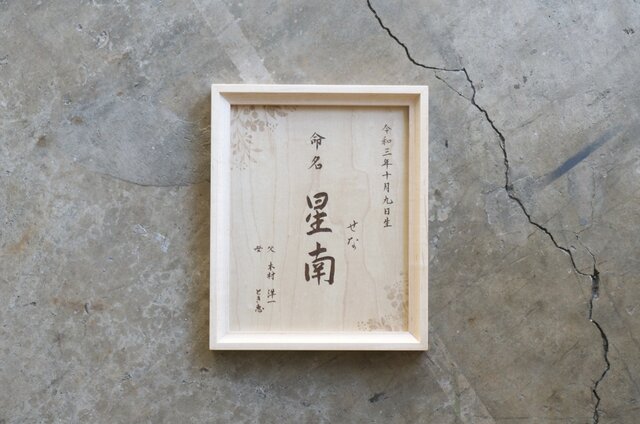 令和三年十月九日生
命名
星南
せな
父 木村 洋一
母 とき恵